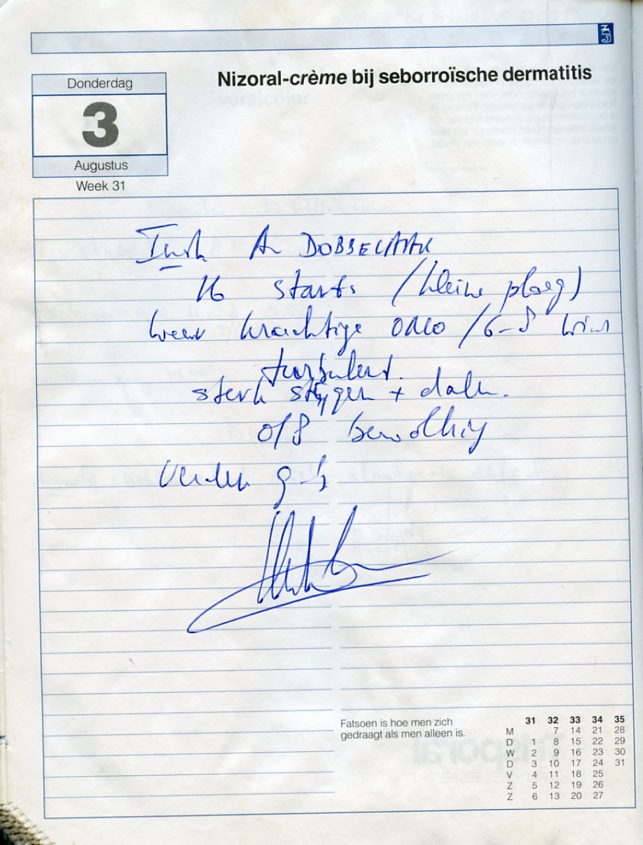 Nizoral-crème bij seborroïsche dermatitis
Donderdag
3
Augustus
Week 31
A. DOBBELAAR
16 starts (kleine ploeg)
weer krachtige ONO / 6-8 wind
turbulent.
sterk stijgen + dalen.
0/8 bewolking
Verder g
Fatsoen is hoe men zich
gedraagt als men alleen is.
31 32 33 34 35
M 7 14 21 28
D 1 8 15 22 29
W 2 9 16 23 30
D 3 10 17 24 31
V 4 11 18 25
Z 5 12 19 26
Z 6 13 20 27